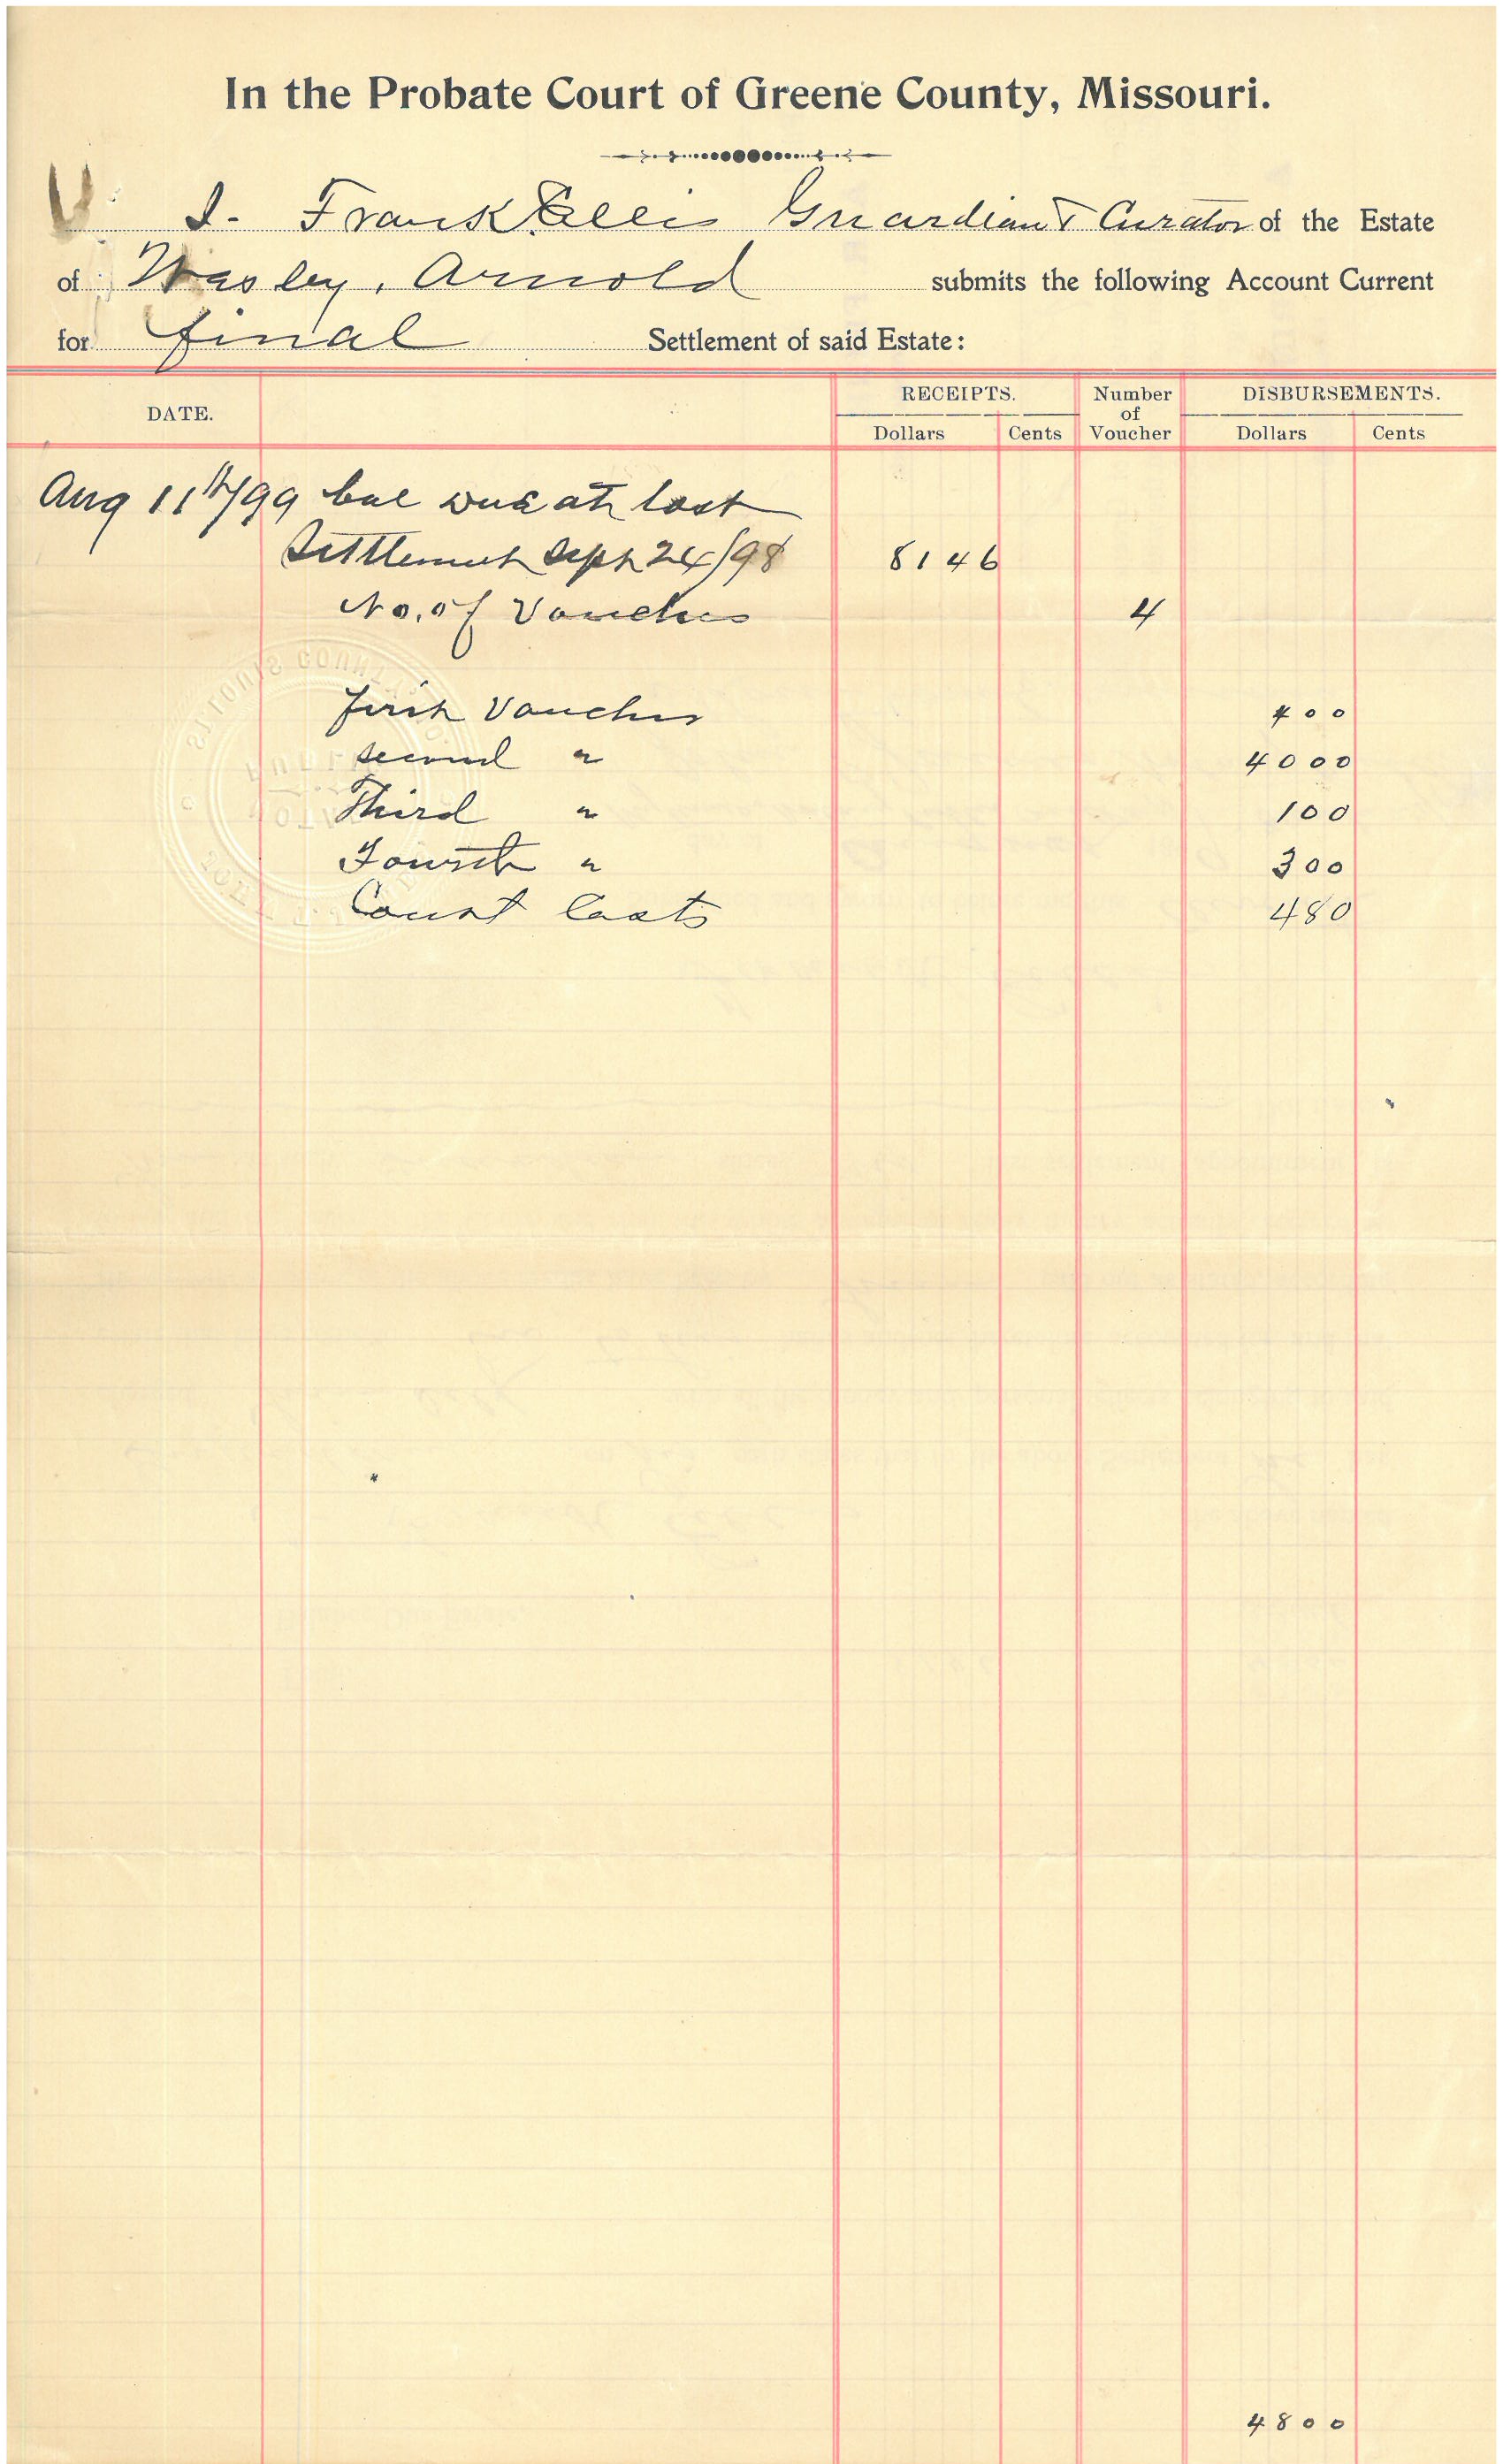 In the Probate Court of Greene County, Missouri.
I- Frank Ellis Guardian & Curator of the Estate
of Wasley. Arnold submits the following Account Current
for final Settlement of said Estate:
DATE. RECEIPTS. Number of Voucher DISBURSEMENTS.
Dollars Cents Dollars Cents
Aug 11th/99 bal due at last
Settlement Sept 24/98 8146
No. of Vouchers 4
first Voucher 400
second " 4000
Third " 100
Fourth " 300
Court Costs 480
4800